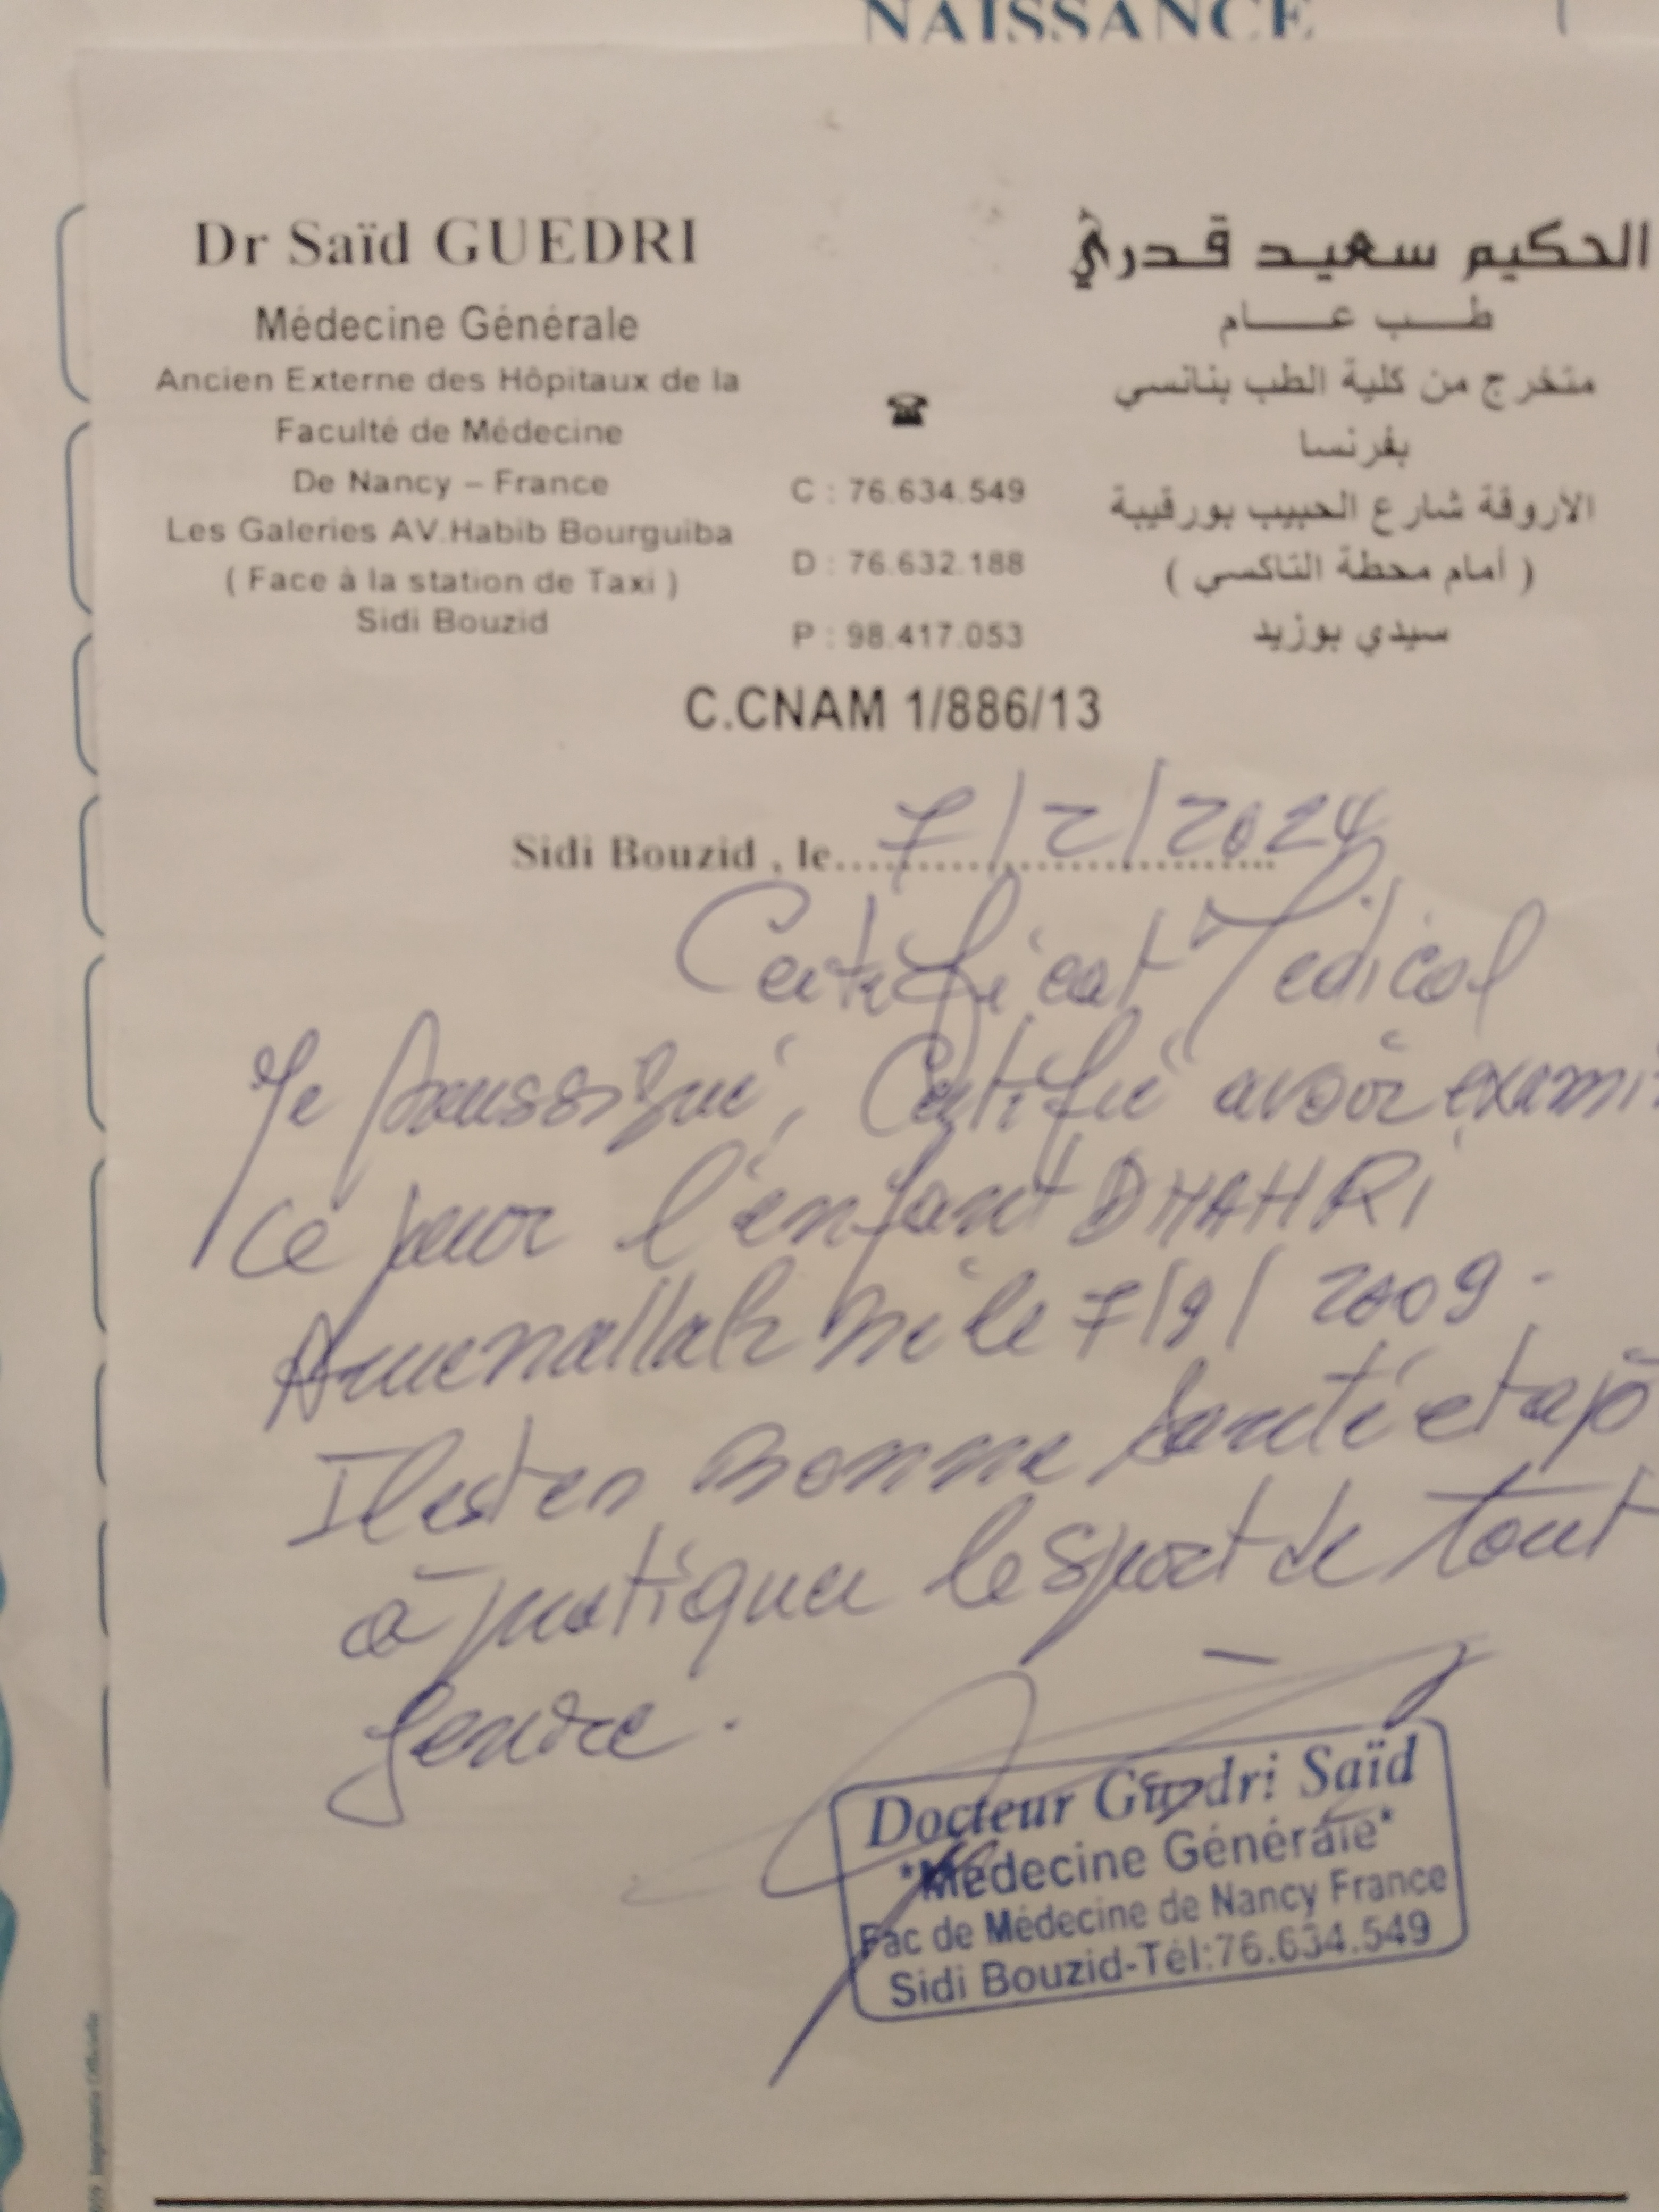 NAISSANCE
Dr Saïd GUEDRI
Médecine Générale
Ancien Externe des Hôpitaux de la
Faculté de Médecine
De Nancy – France
Les Galeries AV.Habib Bourguiba
( Face à la station de Taxi )
Sidi Bouzid
☎
C : 76.634.549
D : 76.632.188
P : 98.417.053
الحكيم سعيد قدري
طب عام
متخرج من كلية الطب بنانسي
بفرنسا
الأروقة شارع الحبيب بورقيبة
( أمام محطة التاكسي )
سيدي بوزيد
C.CNAM 1/886/13
Sidi Bouzid , le 7/2/2024
Certificat Medical
Je soussigné, Certifié avoir exami
ce jour l'enfant DHAHRI
Amenallah né le 7/9/2009.
Il est en Bonne santé et apt
à pratiquer le sport de tout
genre.
Docteur Guedri Saïd
*Médecine Générale*
Fac de Médecine de Nancy France
Sidi Bouzid-Tél:76.634.549
Imprimerie Officielle